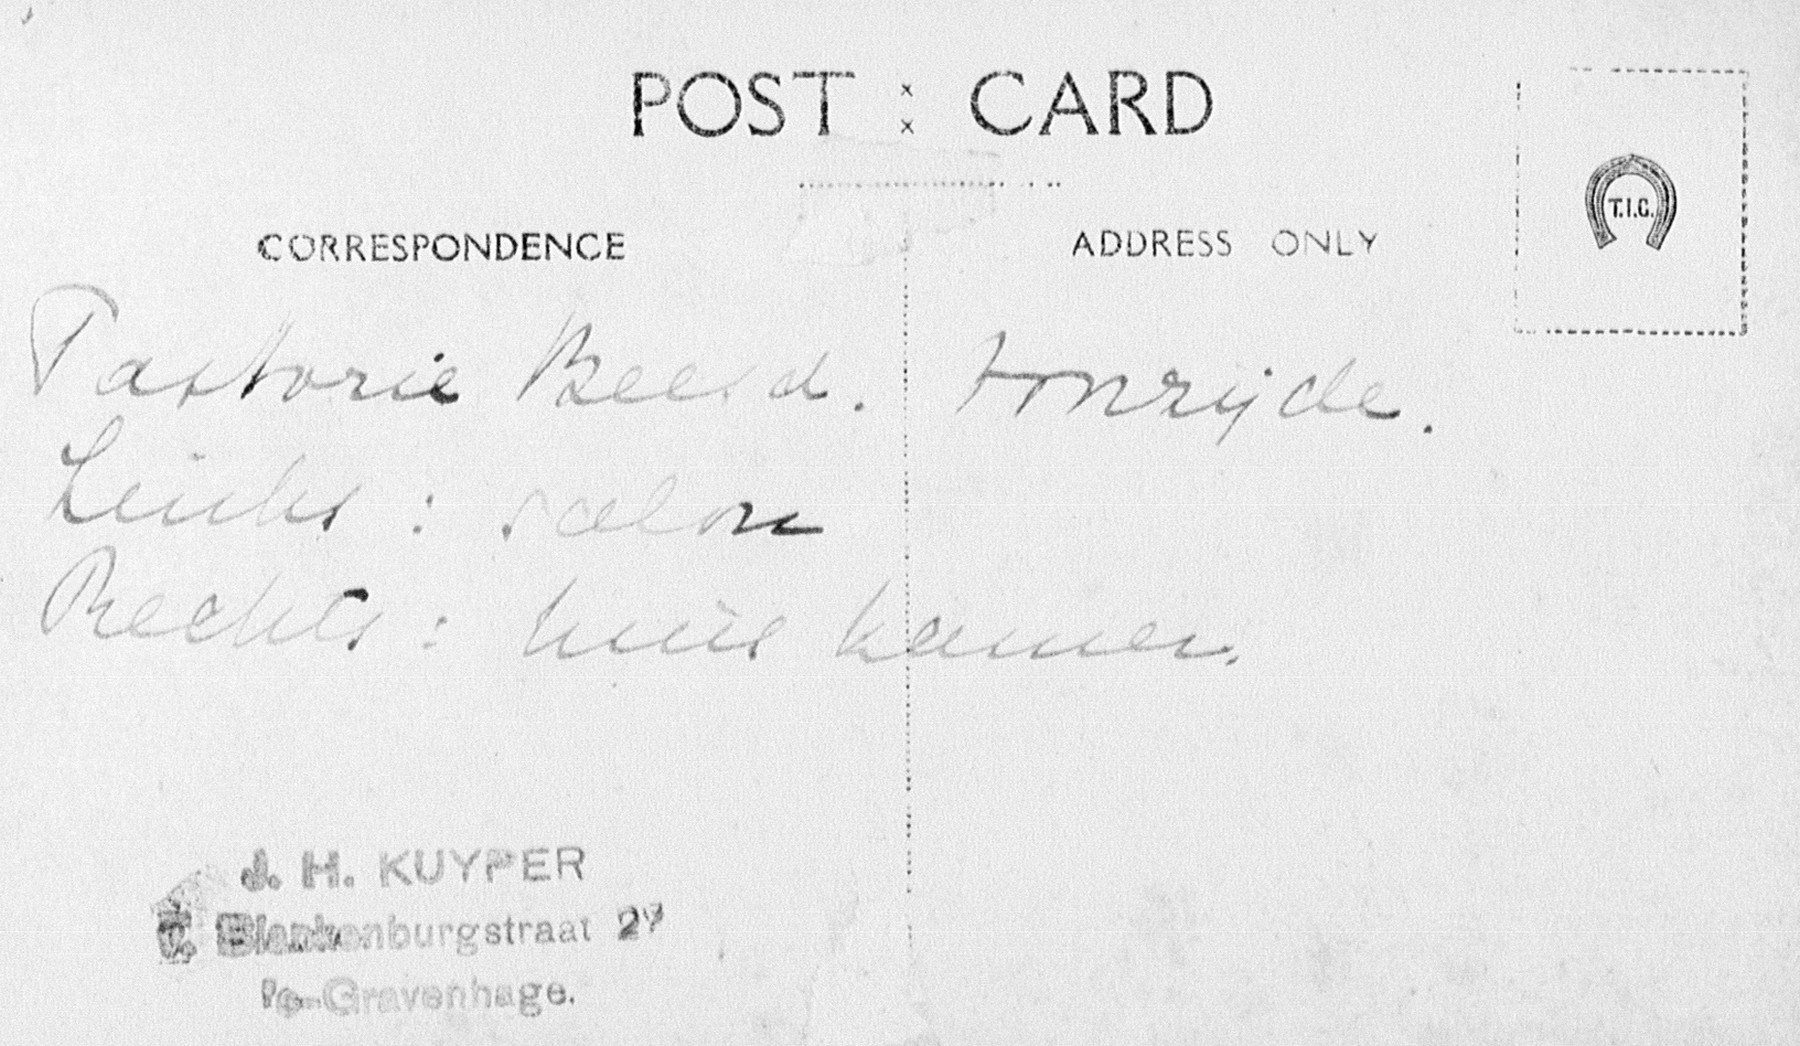 POST : CARD
CORRESPONDENCE
ADDRESS ONLY
T.I.C.
Pastorie Beesd. Tonrijde.
Links : salon
Rechts : huis kamer.
J. H. KUYPER
Blankenburgstraat 27
's-Gravenhage.